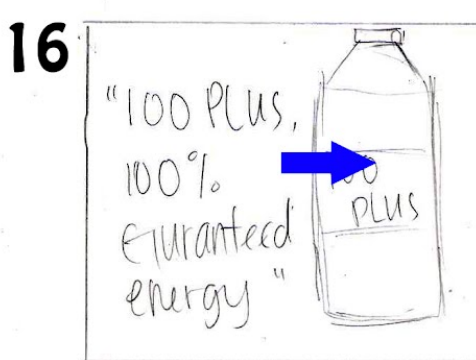 16
"100 PLUS,
100%
Guranteed
energy"
100
PLUS